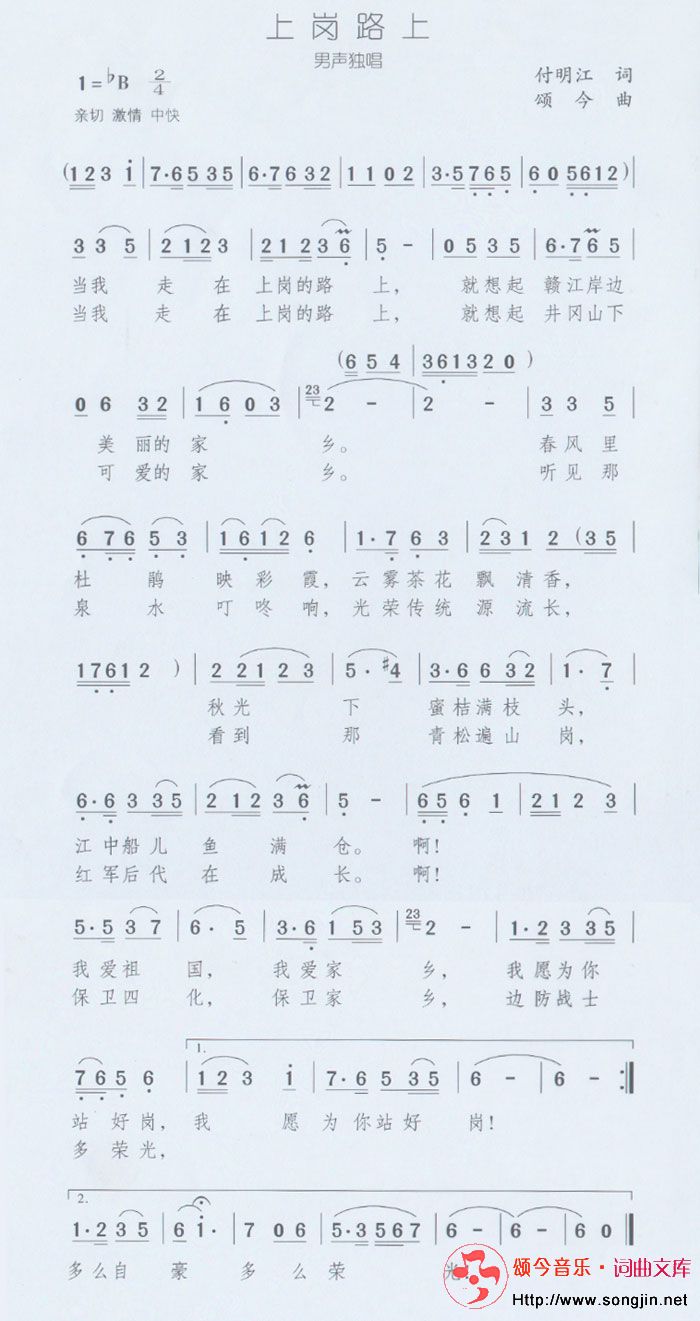 上岗路上
男声独唱
1=♭B 2/4
付明江 词
亲切 激情 中快
颂今 曲
(123 i|7·6535|6·7632|1102|3·5765|6 05612)|
335|2123|21236|5 -|0535|6·765|
当我 走 在 上岗的路 上， 就想起 赣江岸边
当我 走 在 上岗的路 上， 就想起 井冈山下
(654|361320)
06 32|1603|23 2 -|2 -|33 5|
美 丽的 家 乡。 春风里
可 爱的 家 乡。 听见那
6 76 5 3|1612 6|1·763|231 2 (35|
杜 鹃 映彩霞，云雾茶花 飘清香，
泉 水 叮咚响，光荣传统 源流长，
17612 )|22123|5·#4|3·6632|1·7|
秋光 下 蜜桔满枝 头，
看到 那 青松遍山 岗，
6·6335|21236|5 -|6561|2123|
江中船儿 鱼 满 仓。 啊！
红军后代 在 成 长。 啊！
5·537|6·5|3·6153|23 2 -|1·2335|
我爱祖 国， 我爱家 乡， 我愿为你
保卫四 化， 保卫家 乡， 边防战士
1.
765 6|123 i|7·6535|6 -|6 -:|
站好岗，我 愿 为你站好 岗！
多荣光，
2.
1·235|6i·|706|5·3567|6 -|6 -|60‖
多么自 豪 多 么荣 光
颂今音乐·词曲文库
Http://www.songjin.net